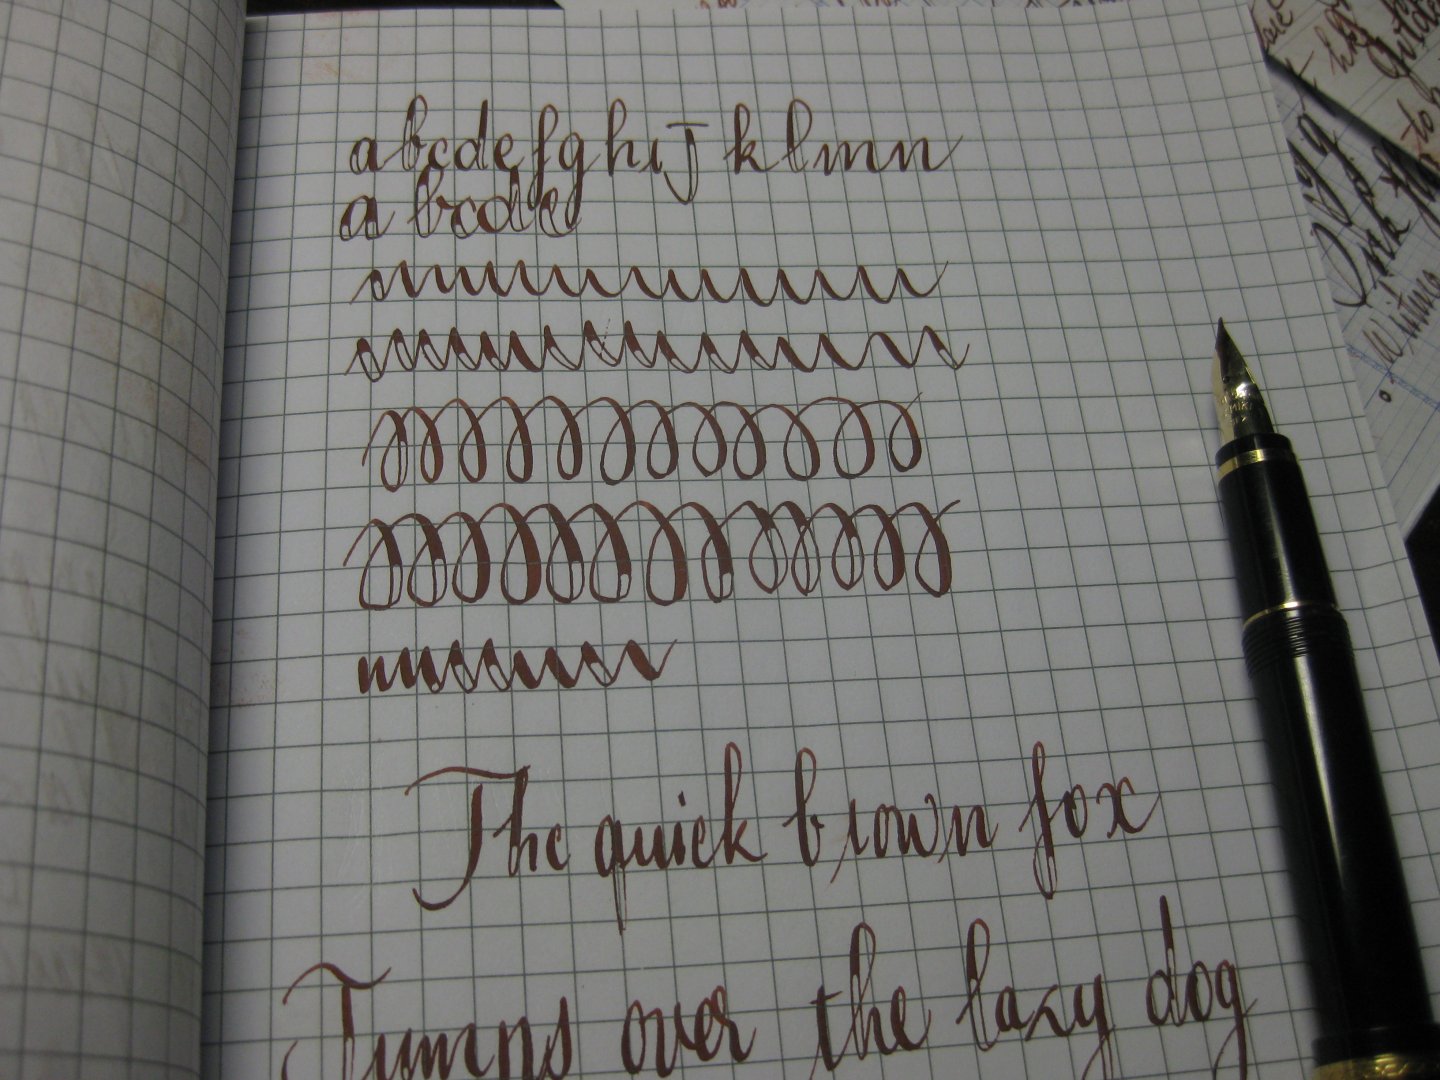 abcdefghij klmn
abcde
The quick brown fox
Jumps over the lazy dog
Writing